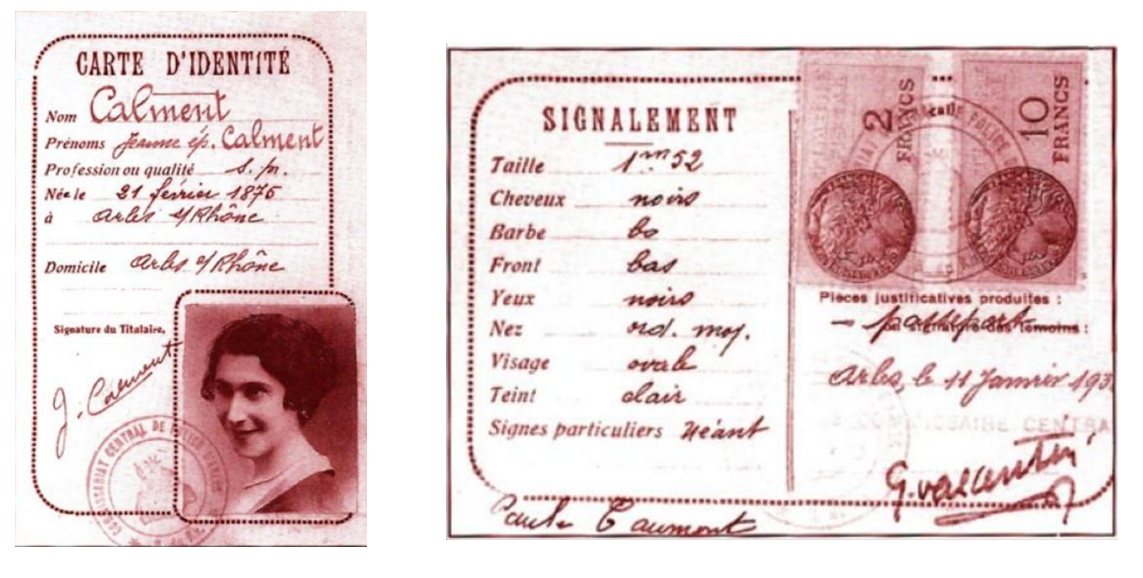 CARTE D'IDENTITÉ
Nom Calment
Prénoms Jeanne ép. Calment
Profession ou qualité s. p.
Née le 21 février 1875
à Arles s/Rhône
Domicile Arles s/Rhône
Signature du Titulaire,
J. Calment
COMMISSARIAT CENTRAL DE POLICE
SIGNALEMENT
Taille 1m52
Cheveux noirs
Barbe
Front bas
Yeux noirs
Nez ord. moy.
Visage ovale
Teint clair
Signes particuliers Néant
2 FRANCS
10 FRANCS
POLICE
Pièces justificatives produites :
— passeport
ou signature des témoins :
Arles, le 11 Janvier 193
LE COMMISSAIRE CENTRA